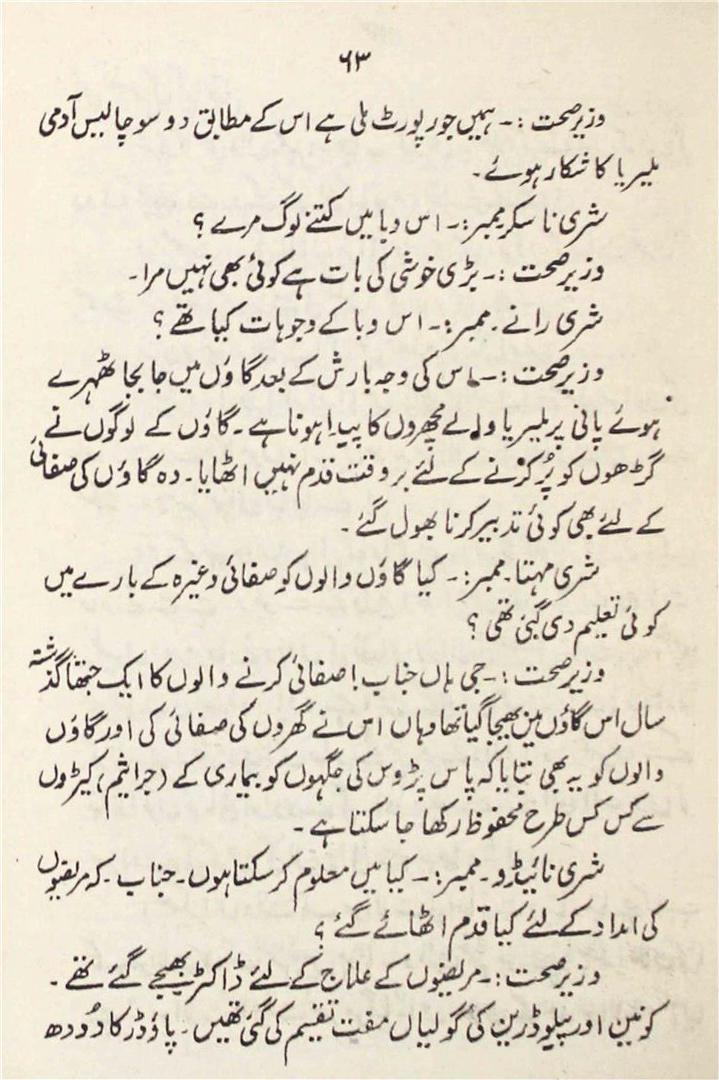 ۶۳
وزیر صحت :۔ ہمیں جو رپورٹ ملی ہے اس کے مطابق دو سو چالیس آدمی
ملیریا کا شکار ہوئے۔
شری ناسکر ممبر :۔ اس وبا میں کتنے لوگ مرے ؟
وزیر صحت :۔ بڑی خوشی کی بات ہے کوئی بھی نہیں مرا۔
شری رانے۔ ممبر :۔ اس وبا کے وجوہات کیا تھے ؟
وزیر صحت :۔ اس کی وجہ بارش کے بعد گاؤں میں جا بجا ٹھہرے
ہوئے پانی پر ملیریا والے مچھروں کا پیدا ہونا ہے۔ گاؤں کے لوگوں نے
گڑھوں کو پُر کرنے کے لئے بر وقت قدم نہیں اٹھایا۔ وہ گاؤں کی صفائی
کے لئے بھی کوئی تدبیر کرنا بھول گئے۔
شری مہتا۔ ممبر :۔ کیا گاؤں والوں کو صفائی وغیرہ کے بارے میں
کوئی تعلیم دی گئی تھی ؟
وزیر صحت :۔ جی ہاں جناب! صفائی کرنے والوں کا ایک جتھا گذشتہ
سال اس گاؤں میں بھیجا گیا تھا وہاں اس نے گھروں کی صفائی کی اور گاؤں
والوں کو یہ بھی بتایا کہ پاس پڑوس کی جگہوں کو بیماری کے (جراثیم) کیڑوں
سے کس کس طرح محفوظ رکھا جا سکتا ہے۔
شری نائیڈو۔ ممبر :۔ کیا میں معلوم کر سکتا ہوں۔ جناب۔ کہ مریضوں
کی امداد کے لئے کیا قدم اٹھائے گئے ؟
وزیر صحت :۔ مریضوں کے علاج کے لئے ڈاکٹر بھیجے گئے تھے۔
کونین اور پیلوڈرین کی گولیاں مفت تقسیم کی گئی تھیں۔ پاؤڈر کا دُودھ